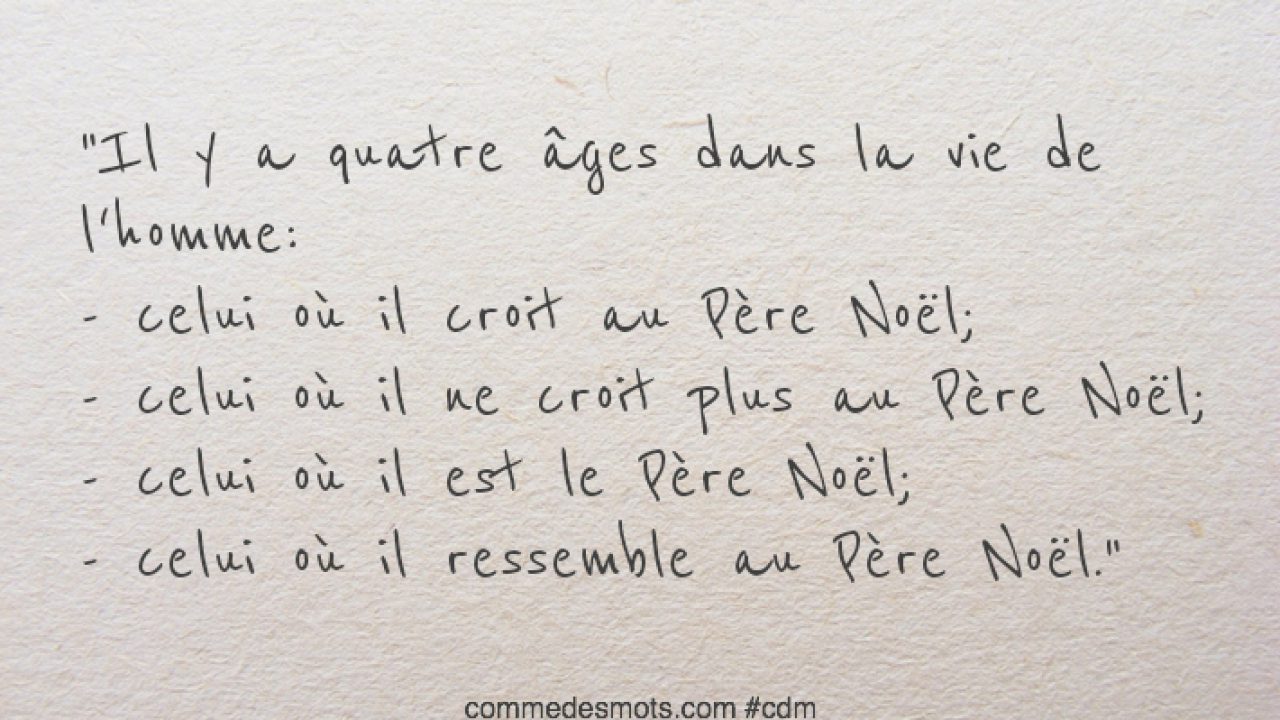 "Il y a quatre âges dans la vie de
l'homme:
- celui où il croit au Père Noël;
- celui où il ne croit plus au Père Noël;
- celui où il est le Père Noël;
- celui où il ressemble au Père Noël."
commedesmots.com #cdm